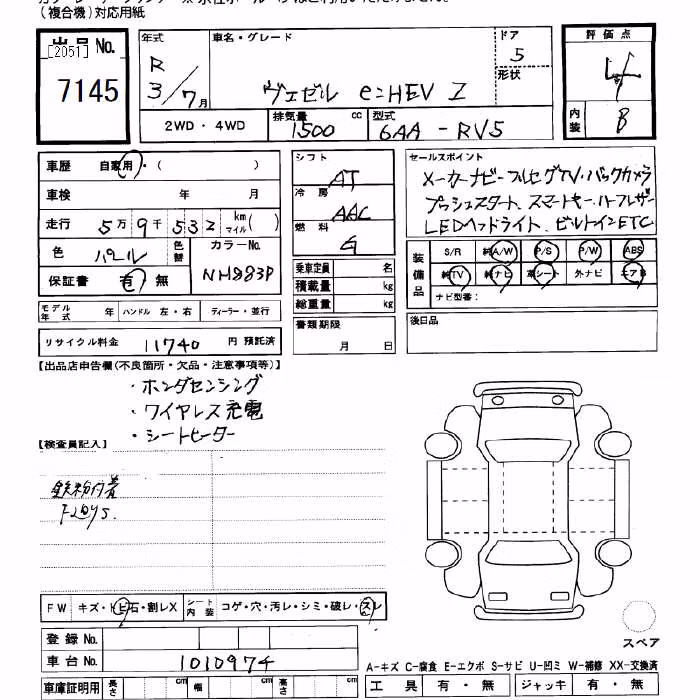 (複合機)対応用紙
出品 No.
[2051]
7145
年式
R
3/7月
車名・グレード
ヴェゼル e:HEV Z
ドア
5
形状
評価点
4
内装
B
2WD・4WD
排気量
1500 cc
型式
6AA - RV5
車歴 自家用・( )
車検 年 月
走行 5万9千532 km マイル( )
色 パール
色替
カラーNo.
NH883P
保証書 有・無
シフト
AT
冷房
AAC
燃料
G
乗車定員 名
積載量 kg
総重量 kg
書類期限
月 日
セールスポイント
メーカーナビ・フルセグTV・バックカメラ
プッシュスタート、スマートキー、ハーフレザー
LEDヘッドライト、ビルトインETC
装備品
S/R 純A/W P/S P/W ABS
純TV 純ナビ 革シート 外ナビ エアB
ナビ型番:
後日品
モデル年式 年 ハンドル 左・右 ディーラー・並行
リサイクル料金 11740 円 預託済
【出品店申告欄(不良箇所・欠品・注意事項等)】
・ホンダセンシング
・ワイヤレス充電
・シートヒーター
【検査員記入】
鉄粉付着
FW キズ・ヒ石・割レX
シート内装 コゲ・穴・汚レ・シミ・破レ・スレ
登録 No.
車台 No. 1010974
車庫証明用 長さ cm 幅 cm 高さ cm
スペア
A-キズ C-腐食 E-エクボ S-サビ U-凹ミ W-補修 XX-交換済
工具 有・無 ジャッキ 有・無